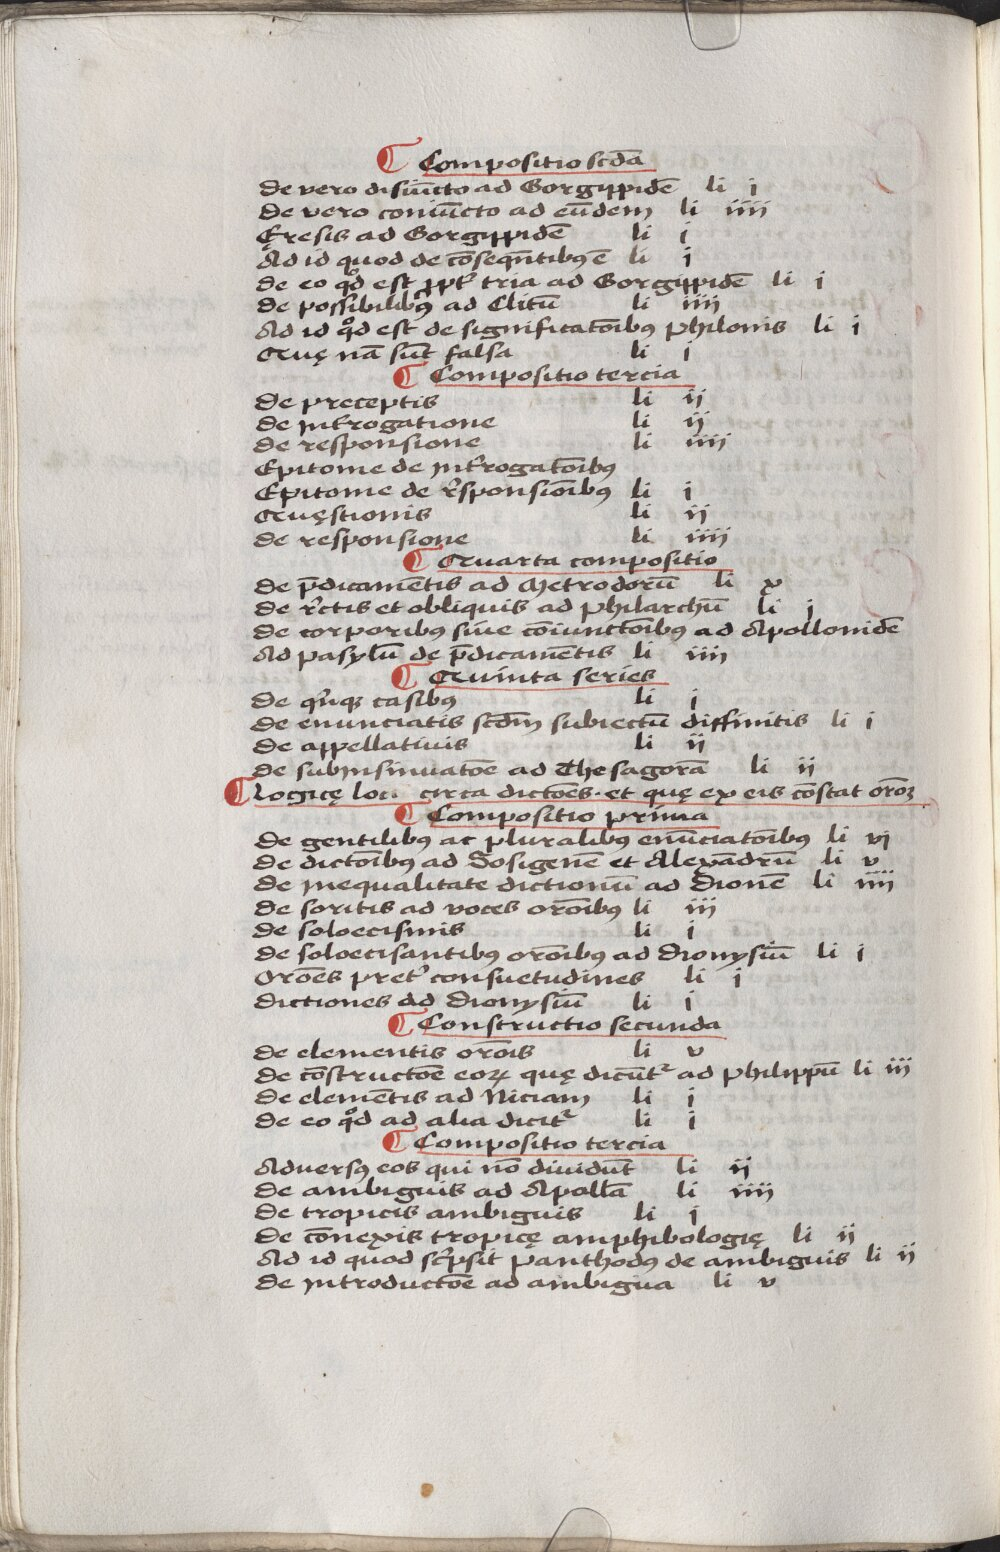 ¶ Compositio scd̃a
De vero disiũcto ad Gorgippidẽ li j
De vero coniũcto ad eũdem li iiij
Ęresis ad Gorgippidẽ li j
Ad id quod de cõseqñtibus ẽ li j
De eo qd̕ est ꝓpt̕ tria ad Gorgippidẽ li j
De possibilibꝰ ad Clitũ li iiij
Ad id qd̕ est de significatõibus philonis li j
Quę nã sũt falsa li j
¶ Compositio tercia
De preceptis li ij
De int̕rogatione li ij
De responsione li iiij
Epitome de int̕rogatõibꝰ
Epitome de r̕sponsiõibꝰ li j
Quęstionis li ij
De responsione li iiij
¶ Quarta compositio
De p̃dicamẽtis ad Metrodorũ li x
De r̕ctis et obliquis ad philarchũ li j
De corporibꝰ siue cõiunctõibꝰ ad Apollonidẽ
Ad pasylũ de p̃dicamẽtis li iiij
¶ Quinta series
De qn̕qꝫ casibꝰ li j
De enunciatis scd̃m subiectũ diffinitis li j
De appellatiuis li ij
De subinsinuatõe ad Thesagorã li ij
¶ Logicę loci circa dictões. et quę ex eis cõstat orõꝝ
¶ Compositio prima
De gentilibꝰ ac pluralibus enũciatõibꝰ li vj
De dictõibꝰ ad Dosigenẽ et Alexãdrũ li v
De inequalitate dictionũ ad Dionẽ li iiij
De soritis ad voces orõibꝰ li iij
De soloecismis li j
De soloecisantibꝰ orõibꝰ ad Dionysiũ li j
Orões pret̕ consuetudines li j
Dictiones ad Dionysiũ li j
¶ Constructio secunda
De elementis orõis li v
De cõstructõe eoꝝ quę dicũt̕ ad philippũ li iij
De elemẽtis ad Niciam li j
De eo qd̕ ad alia dicit̕ li j
¶ Compositio tercia
Aduersꝰ eos qui nõ diuidũt li ij
De ambiguis ad Apollã li iiij
De tropicis ambiguis li j
De cõnexis tropicę amphibologię li ij
Ad id quod sc̕psit panthodꝰ de ambiguis li ij
De introductõe ad ambigua li v